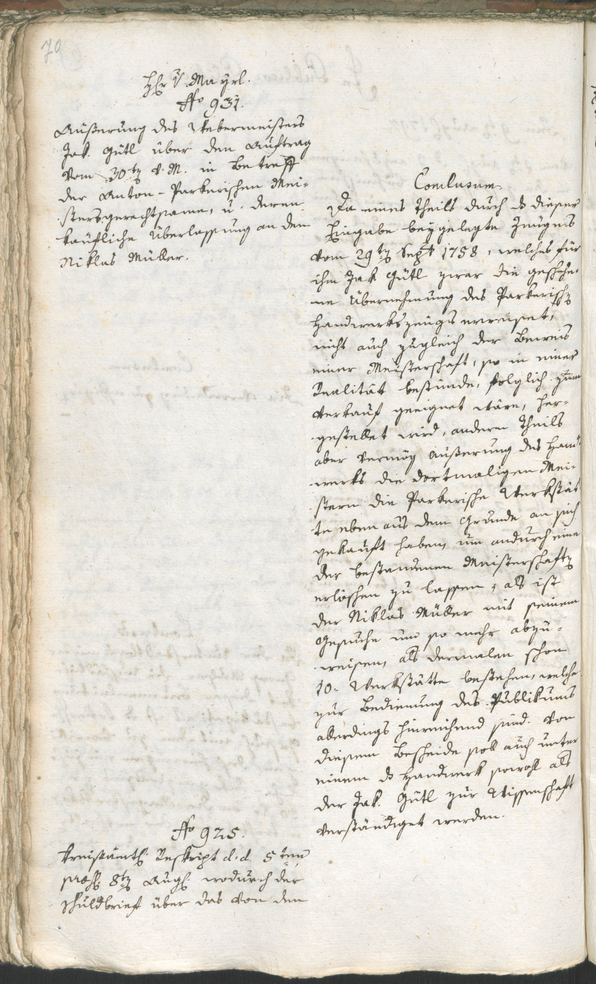 70
Hr. V. Mayrl.
No 931.
Äußerung des Webermeisters
Jak. Gütl über den Auftrag
vom 30ten v. M. in betreff
der Anton-Parkerischen Mei-
stersgerechtsame, u. deren
käufliche Überlassung an den
Niklas Müller.
Conclusum.
Da eines Theils durch das dieser
Eingabe beygelegte Zeugnis
vom 29ten Sept 1758, welches für
ihn Jak Gütl zwar die geschehe-
ne Übernehmung des Parkerisch
Handwerkszeugs erweiset,
nicht auch zugleich der Beweis
einer Meisterschaft, so in einer
Realität bestünde, folglich zum
Verkauf geeignet wäre, her-
gestellet wird, andern Theils
aber vermög Äußerung des Hand-
werks die dortmaligen Mei-
stern die Parkerische Werkstät-
te eben aus dem Grunde an sich
gekauft haben, um andurch eine
der bestandenen Meisterschaften
erlöschen zu lassen, als ist
der Niklas Müller mit seinem
Gesuche um so mehr abzu-
weisen, als dermalen schon
10. Werkstätte bestehen, welche
zur Bedienung des Publikums
allerdings hinreichend sind. Von
diesem Bescheide soll auch unter
einem das Handwerk sowohl als
der Jak. Gütl zur Wissenschaft
verständiget werden.
No 925.
Kreisämtl. Reskript d. d. 5ten
präs. 8ten Augst wodurch der
Schuldbrief über das von dem